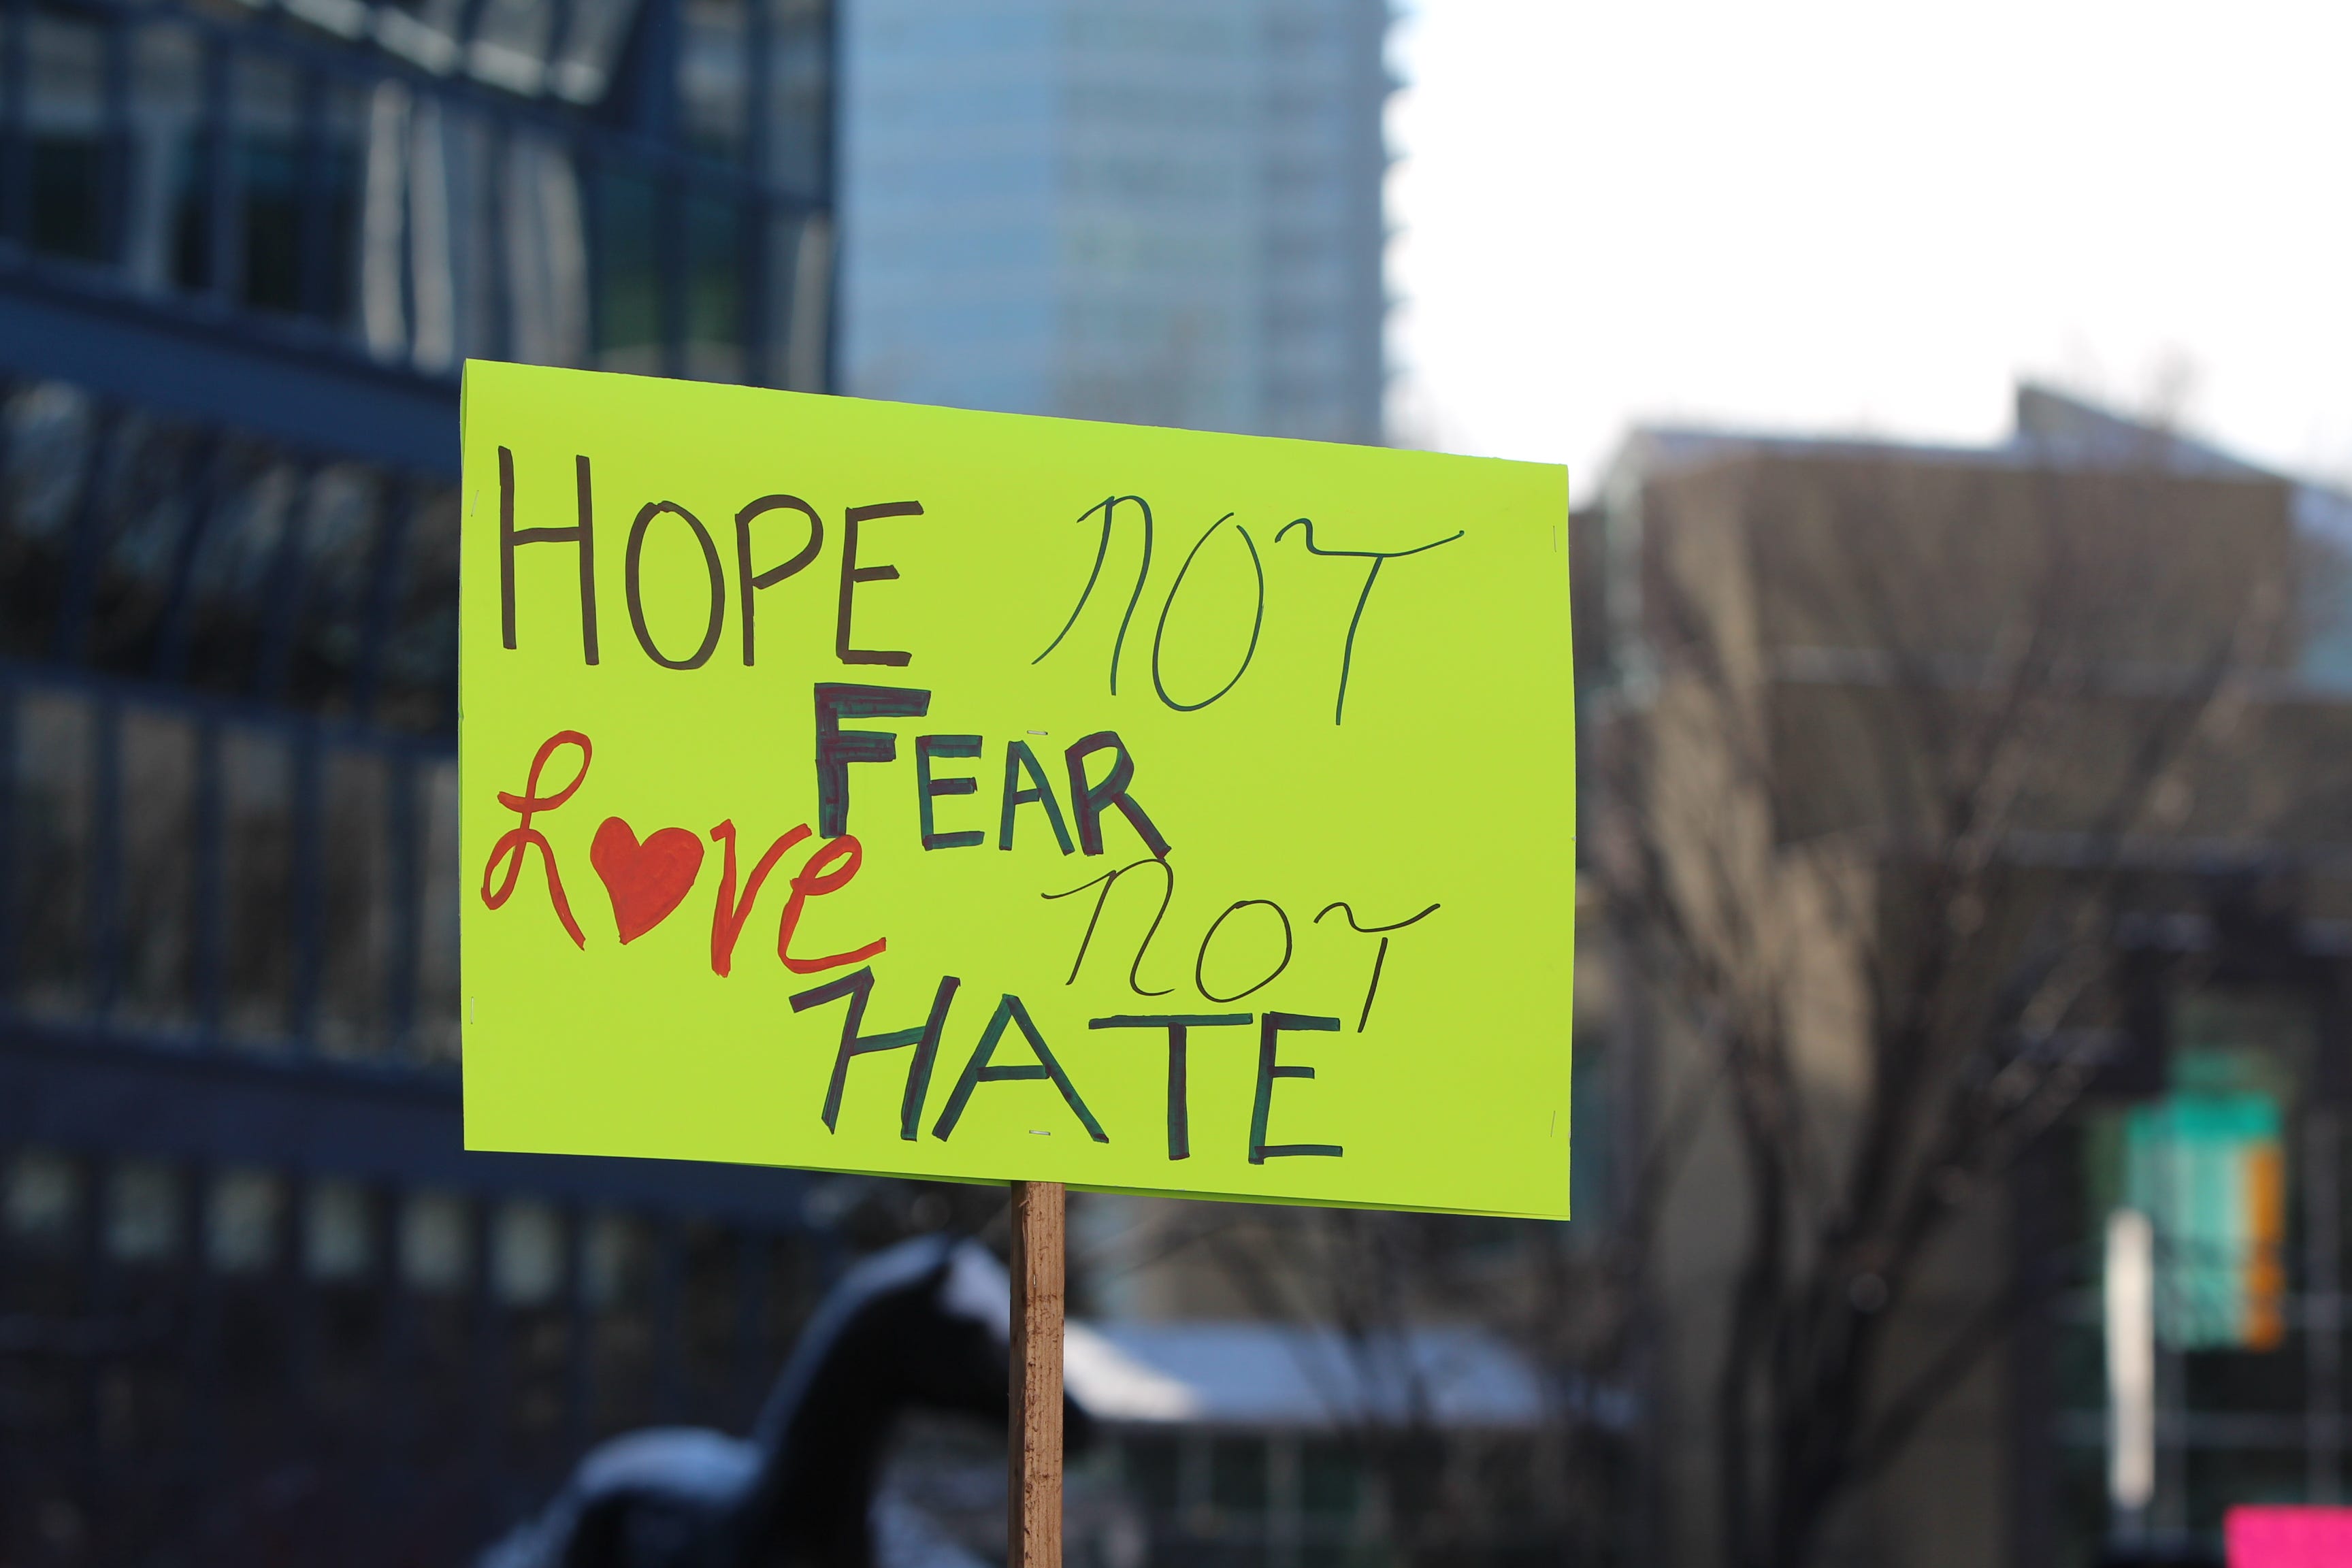 HOPE not
FEAR
Love not
HATE